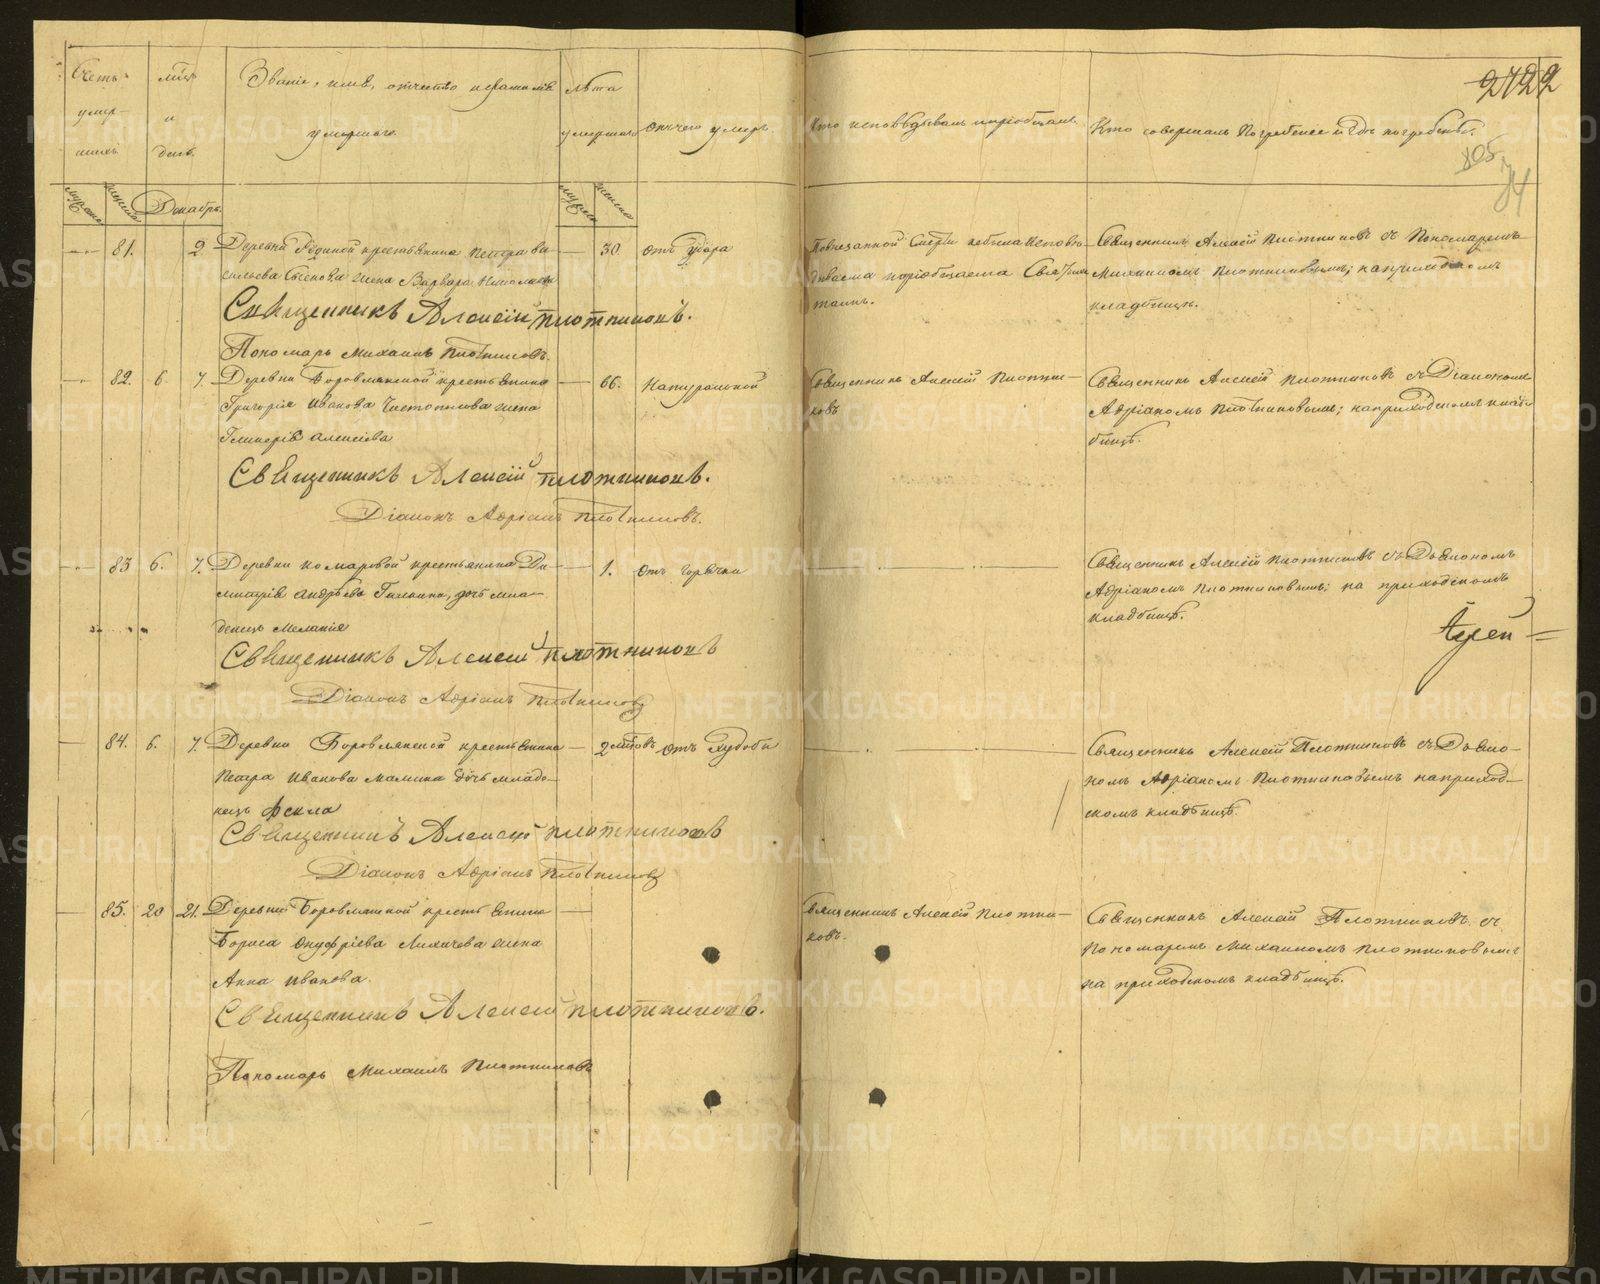 Счетъ умершихъ.
мѣц. и день.
Званіе, имя, отчество и фамилія умершаго.
лѣта умершаго
Отъ чего умеръ.
Кто исповѣдывалъ и пріобщалъ.
Кто совершалъ погребеніе и гдѣ погребены.
2722
105
74
мужска
женска
Декабрь.
мужска
женска
81.
2
Деревни
крестьянина Петра Ва-
сильева
жена Варвара Николаева
30.
отъ удара
Священникъ Алексій Плотниковъ съ Пономаремъ
Михаиломъ Плотниковымъ; на приходскомъ
кладбищѣ.
Священникъ Алексій Плотниковъ.
Пономарь Михаилъ Плотниковъ.
82.
6.
7.
Деревни Боровлянской крестьянина
Григорія Иванова Чистополова жена
Гликерія Алексіева
66.
Натуральной
Священникъ Алексій Плотни-
ковъ
Священникъ Алексій Плотниковъ съ Діакономъ
Адріаномъ Плотниковымъ; на приходскомъ клад-
бищѣ.
Священникъ Алексій Плотниковъ.
Діаконъ Адріанъ Плотниковъ.
83
6.
7.
Деревни Комаровой крестьянина Ди-
митрія Андрѣева
дочь мла-
денецъ Меланія
1.
отъ горячки
Священникъ Алексій Плотниковъ съ Дьякономъ
Адріаномъ Плотниковымъ; на приходскомъ
кладбищѣ.
Священникъ Алексій Плотниковъ
Діаконъ Адріанъ Плотниковъ
84.
6.
7.
Деревни Боровлянской крестьянина
Петра Иванова Малкина дочь младе-
нецъ Фекла
2
отъ худобы
Священникъ Алексій Плотниковъ съ Дьяко-
номъ Адріаномъ Плотниковымъ на приход-
скомъ кладбищѣ.
Священникъ Алексій Плотниковъ
Діаконъ Адріанъ Плотниковъ
85.
20
21.
Деревни Боровлянской крестьянина
Бориса Онуфріева Лихачева жена
Анна Иванова.
Священникъ Алексій Плотни-
ковъ.
Священникъ Алексій Плотниковъ съ
Пономаремъ Михаиломъ Плотниковымъ
на приходскомъ кладбищѣ.
Священникъ Алексій Плотниковъ.
Пономарь Михаилъ Плотниковъ
METRIKI.GASO-URAL.RU